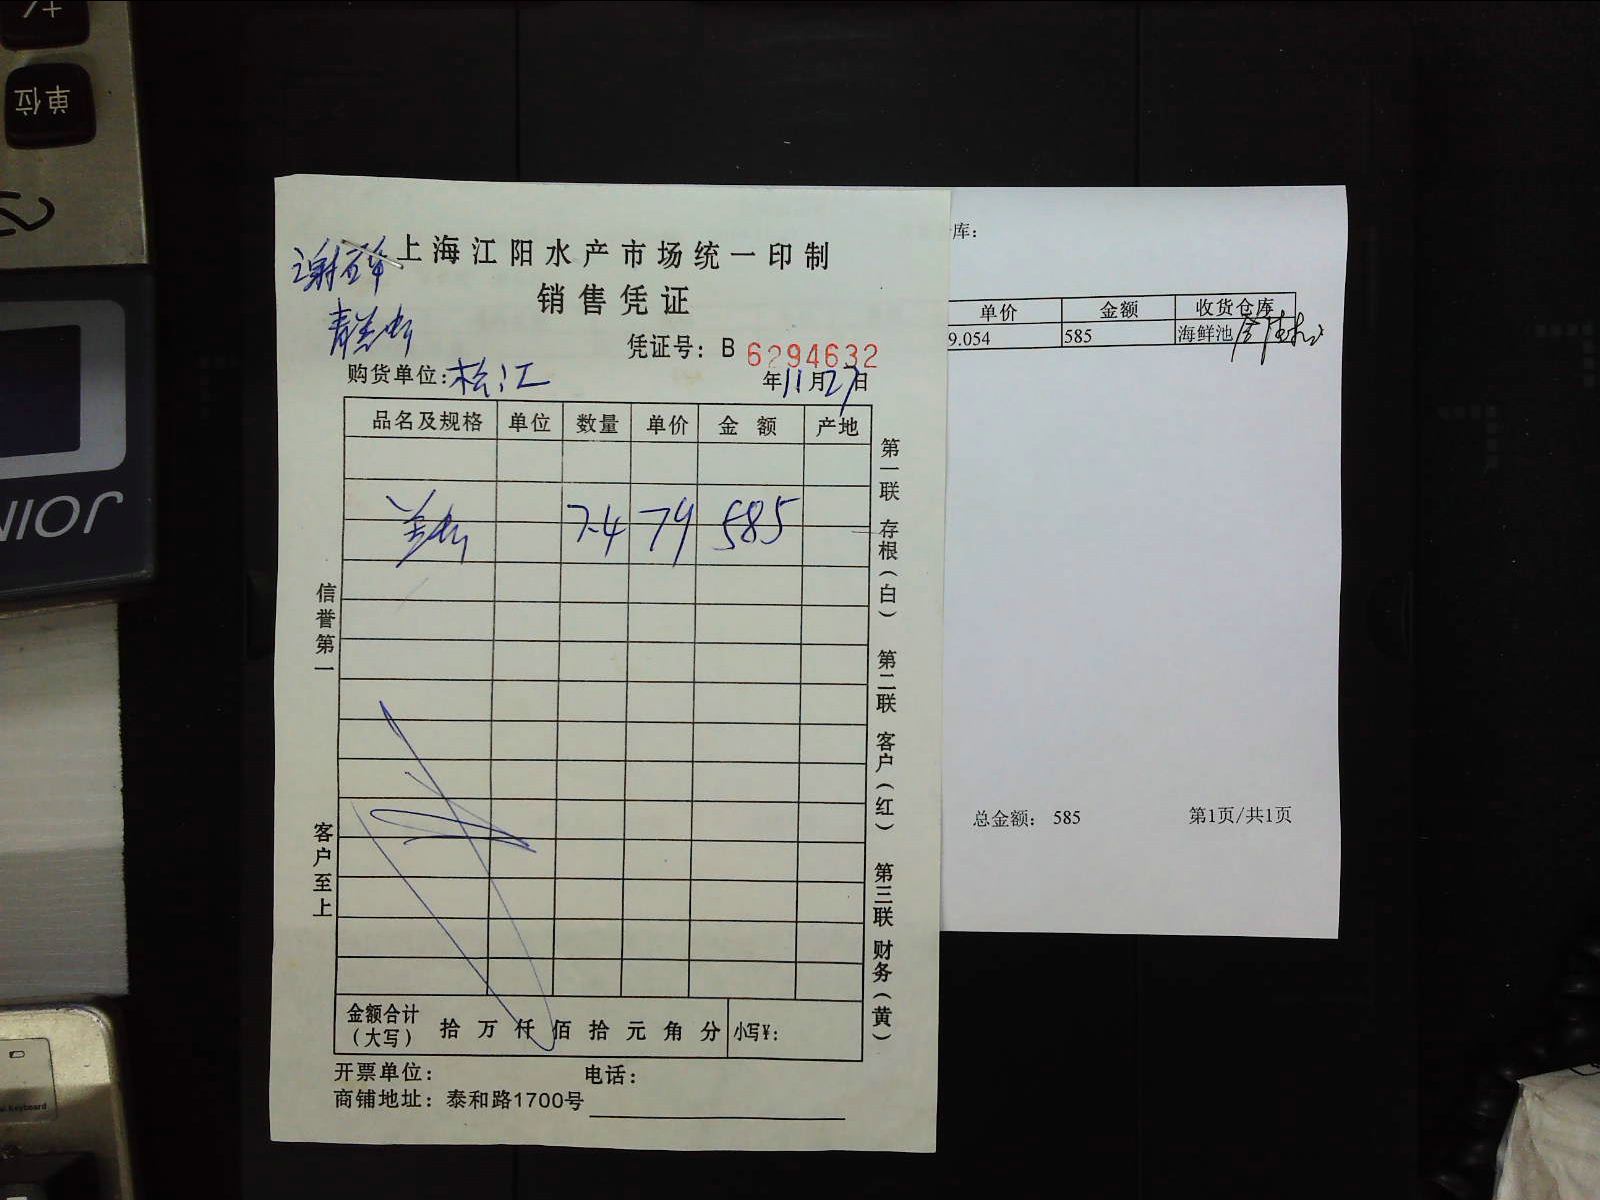 +/
单位
JOIN
上海江阳水产市场统一印制
销售凭证
凭证号: B 6294632
购货单位: 松江
年11月27日
品名及规格 单位 数量 单价 金额 产地
7.4 79 585
信誉第一
客户至上
第一联 存根(白) 第二联 客户(红) 第三联 财务(黄)
金额合计(大写) 拾 万 仟 佰 拾 元 角 分 小写¥:
开票单位: 电话:
商铺地址: 泰和路1700号
库:
单价 金额 收货仓库
9.054 585 海鲜池
总金额: 585 第1页/共1页